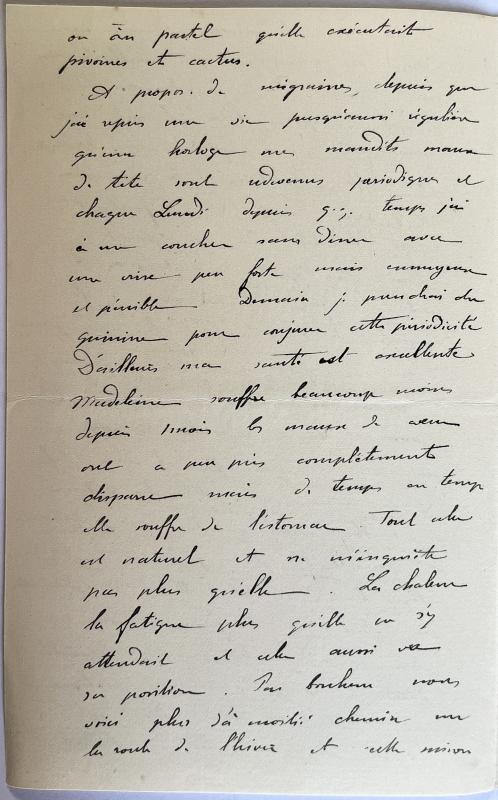 ou au pastel qu'elle exécutait
pivoines et cactus.
A propos de migraines, depuis que
j'ai repris une vie presqu'aussi régulière
qu'une horloge mes maudits maux
de tête sont redevenus périodiques et
chaque Lundi depuis q.q. temps j'ai
à me coucher sans dîner avec
une crise peu forte mais ennuyeuse
et pénible Demain je prendrai du
quinine pour conjurer cette périodicité
D'ailleurs ma santé est excellente
Madeleine souffre beaucoup moins
depuis 1 mois les maux de cœur
ont a peu près complètements
disparu mais de temps en temps
elle souffre de l'estomac. Tout cela
est naturel et ne m'inquiète
pas plus qu'elle. La chaleur
la fatigue plus qu'elle ne s'y
attendait et cela aussi
sa position. Par bonheur nous
voici plus d'à moitié chemin sur
la route de l'hiver et cette saison